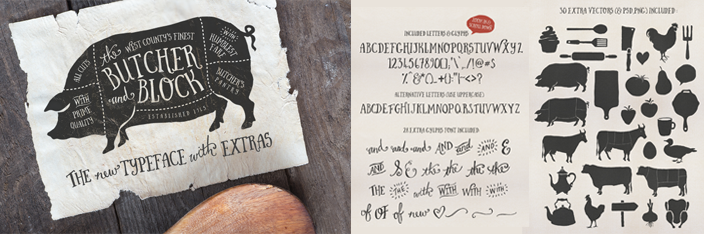 ALL CUTS
the WEST COUNTY'S FINEST
BUTCHER
and BLOCK
ESTABLISHED
WITH
PRIME
QUALITY
WITH
HUMBLEST
FARE
BUTCHER'S
PANTRY
THE new TYPEFACE with EXTRAS
INCLUDED LETTERS & GLYPHS
ABCDEFGHIJKLMNOPQRSTUVWXYZ
ALTERNATIVE LETTERS (USE UPPERCASE)
ABCDEFGHIJKLMNOPQRSTUVWXYZ
EXTRA GLYPHS FONT INCLUDED
and and and AND and AND &
AND & & the the the the
THE THE with WITH WITH WITH
of OF of new
30 EXTRA VECTORS (& PSD, PNG) INCLUDED